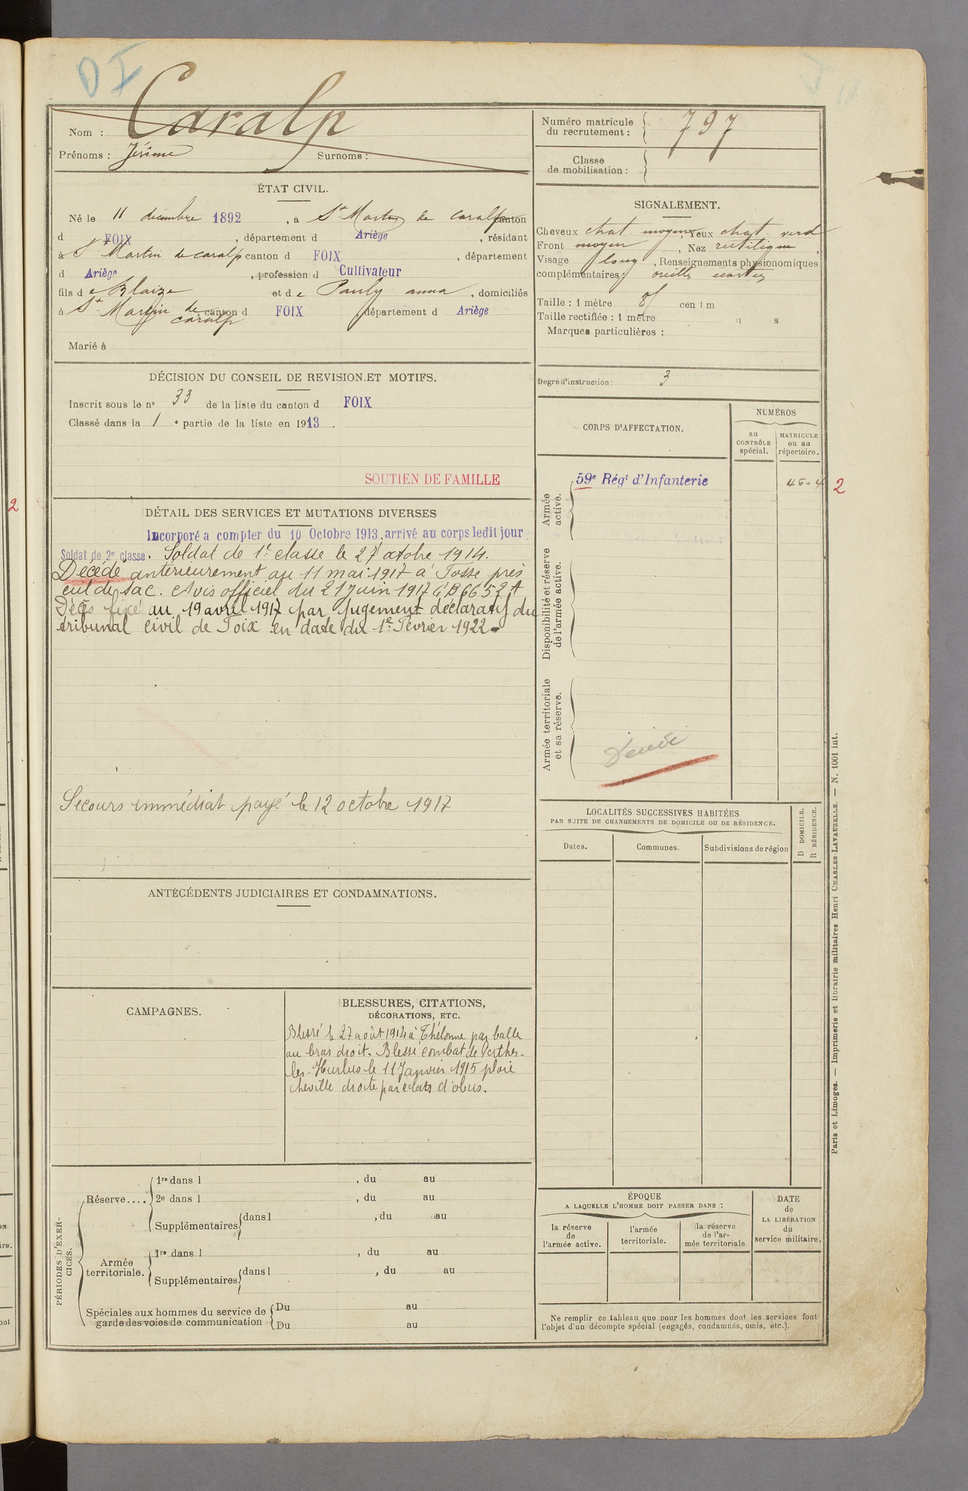 DI
Nom : Caralp
Prénoms : Jérôme Surnoms :
Numéro matricule du recrutement : 797
Classe de mobilisation :
ÉTAT CIVIL.
Né le 11 décembre 1892, à St Martin de Caralp canton
d FOIX, département d Ariège, résidant
à St Martin de caralp canton d FOIX, département
d Ariège, profession d Cultivateur
fils de Blaize et de Pauly anna, domiciliés
à St Martin de caralp canton d FOIX département d Ariège
Marié à
SIGNALEMENT.
Cheveux chat moyen, Yeux chat. verd
Front moyen, Nez rectiligne
Visage long, Renseignements physionomiques
complémentaires: oreille
Taille : 1 mètre cent m
Taille rectifiée : 1 mètre
Marques particulières :
Degré d'instruction : 3
DÉCISION DU CONSEIL DE REVISION ET MOTIFS.
Inscrit sous le n° 33 de la liste du canton d FOIX
Classé dans la 1 e partie de la liste en 1913.
SOUTIEN DE FAMILLE
DÉTAIL DES SERVICES ET MUTATIONS DIVERSES
Incorporé a compter du 10 Octobre 1913, arrivé au corps ledit jour
Soldat de 2e classe. Soldat de 1e classe le 27 octobre 1914.
Décédé antérieurement au 11 mai 1917 à Fosse près
cul de sac. Avis officiel du 21 juin 1917
Décès fixé au 19 avril 1917 par jugement déclaratif du
tribunal civil de Foix en date du 1er Février 1922.
Secours immédiat payé le 12 octobre 1917
CORPS D'AFFECTATION.
NUMÉROS
au CONTRÔLE spécial.
MATRICULE ou au répertoire.
Armée active.
59e Régt d'Infanterie
2
2
Disponibilité et réserve de l'armée active.
Armée territoriale et sa réserve.
Décédé
LOCALITÉS SUCCESSIVES HABITÉES
PAR SUITE DE CHANGEMENTS DE DOMICILE OU DE RÉSIDENCE.
Dates. Communes. Subdivisions de région
D DOMICILE.
R RÉSIDENCE.
ANTÉCÉDENTS JUDICIAIRES ET CONDAMNATIONS.
CAMPAGNES.
BLESSURES, CITATIONS,
DÉCORATIONS, ETC.
Blessé le 27 août 1914 à Thélonne par balle
au bras droit. Blessé combat de Perthes-
les-Hurlus le 11 Janvier 1915 plaie
cheville droite par éclats d'obus.
PÉRIODES D'EXERCICES.
Réserve.... 1re dans l , du au
2e dans l , du au
Supplémentaires dans l , du au
Armée territoriale. 1re dans l , du au
Supplémentaires dans l , du au
Spéciales aux hommes du service de garde des voies de communication Du au
Du au
ÉPOQUE
A LAQUELLE L'HOMME DOIT PASSER DANS :
la réserve de l'armée active.
l'armée territoriale.
la réserve de l'armée territoriale.
DATE de LA LIBÉRATION du service militaire.
Ne remplir ce tableau que pour les hommes dont les services font
l'objet d'un décompte spécial (engagés, condamnés, omis, etc.).
Paris et Limoges. — Imprimerie et librairie militaires Henri CHARLES-LAVAUZELLE. — N. 1001 int.